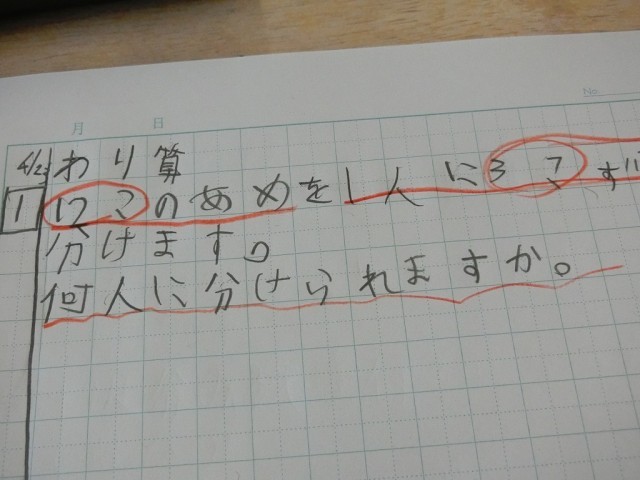 No.
月 日
4/23 わり算
1 12このあめを1人に3こず
分けます。
何人に分けられますか。